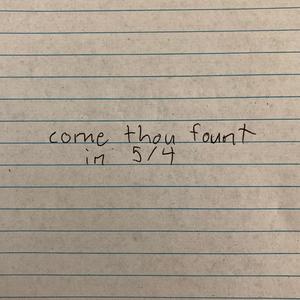 come thou fount
in 5/4